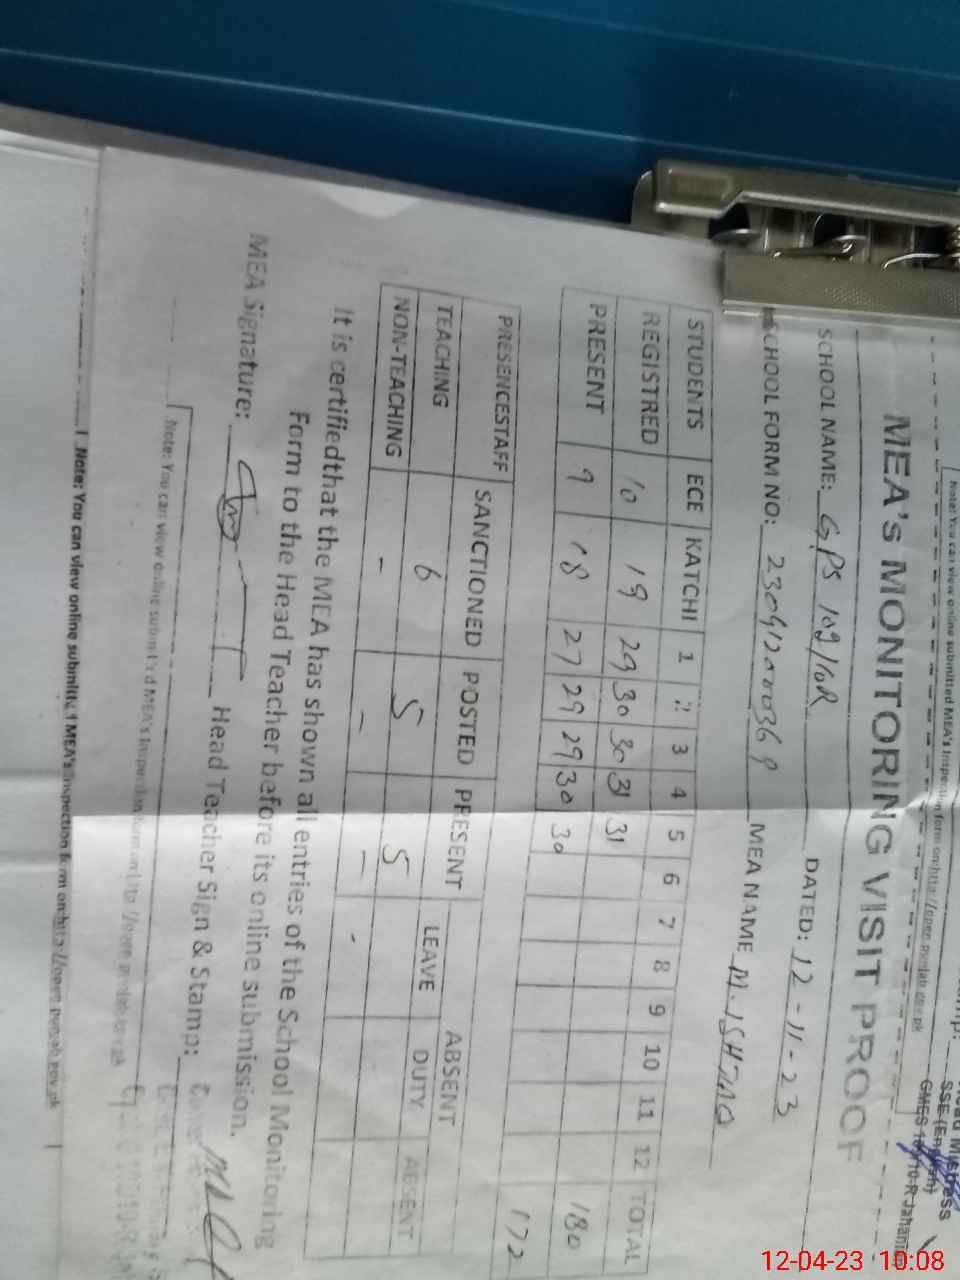 Note: You can view online submitted MEA's Inspection form on:http://open.punjab.gov.pk
SSE (English)
MEA's MONITORING VISIT PROOF
SCHOOL NAME: GPS 109/10R DATED: 12-11-23
SCHOOL FORM NO: MEA NAME M. ISHTIAQ
STUDENTS ECE KATCHI 1 2 3 4 5 6 7 8 9 10 11 12 TOTAL
REGISTRED 10 19 29 30 30 31 31 180
PRESENT 9 18 27 29 29 30 30 172
PRESENCESTAFF SANCTIONED POSTED PRESENT ABSENT
LEAVE DUTY ABSENT
TEACHING 6 5 5
NON-TEACHING - - - -
It is certifiedthat the MEA has shown all entries of the School Monitoring
Form to the Head Teacher before its online submission.
MEA Signature: Head Teacher Sign & Stamp:
Note: You can view online submitted MEA's Inspection form on http://open.punjab.gov.pk
Note: You can view online submitted MEA's Inspection form on:http://open.punjab.gov.pk
12-04-23 10:08